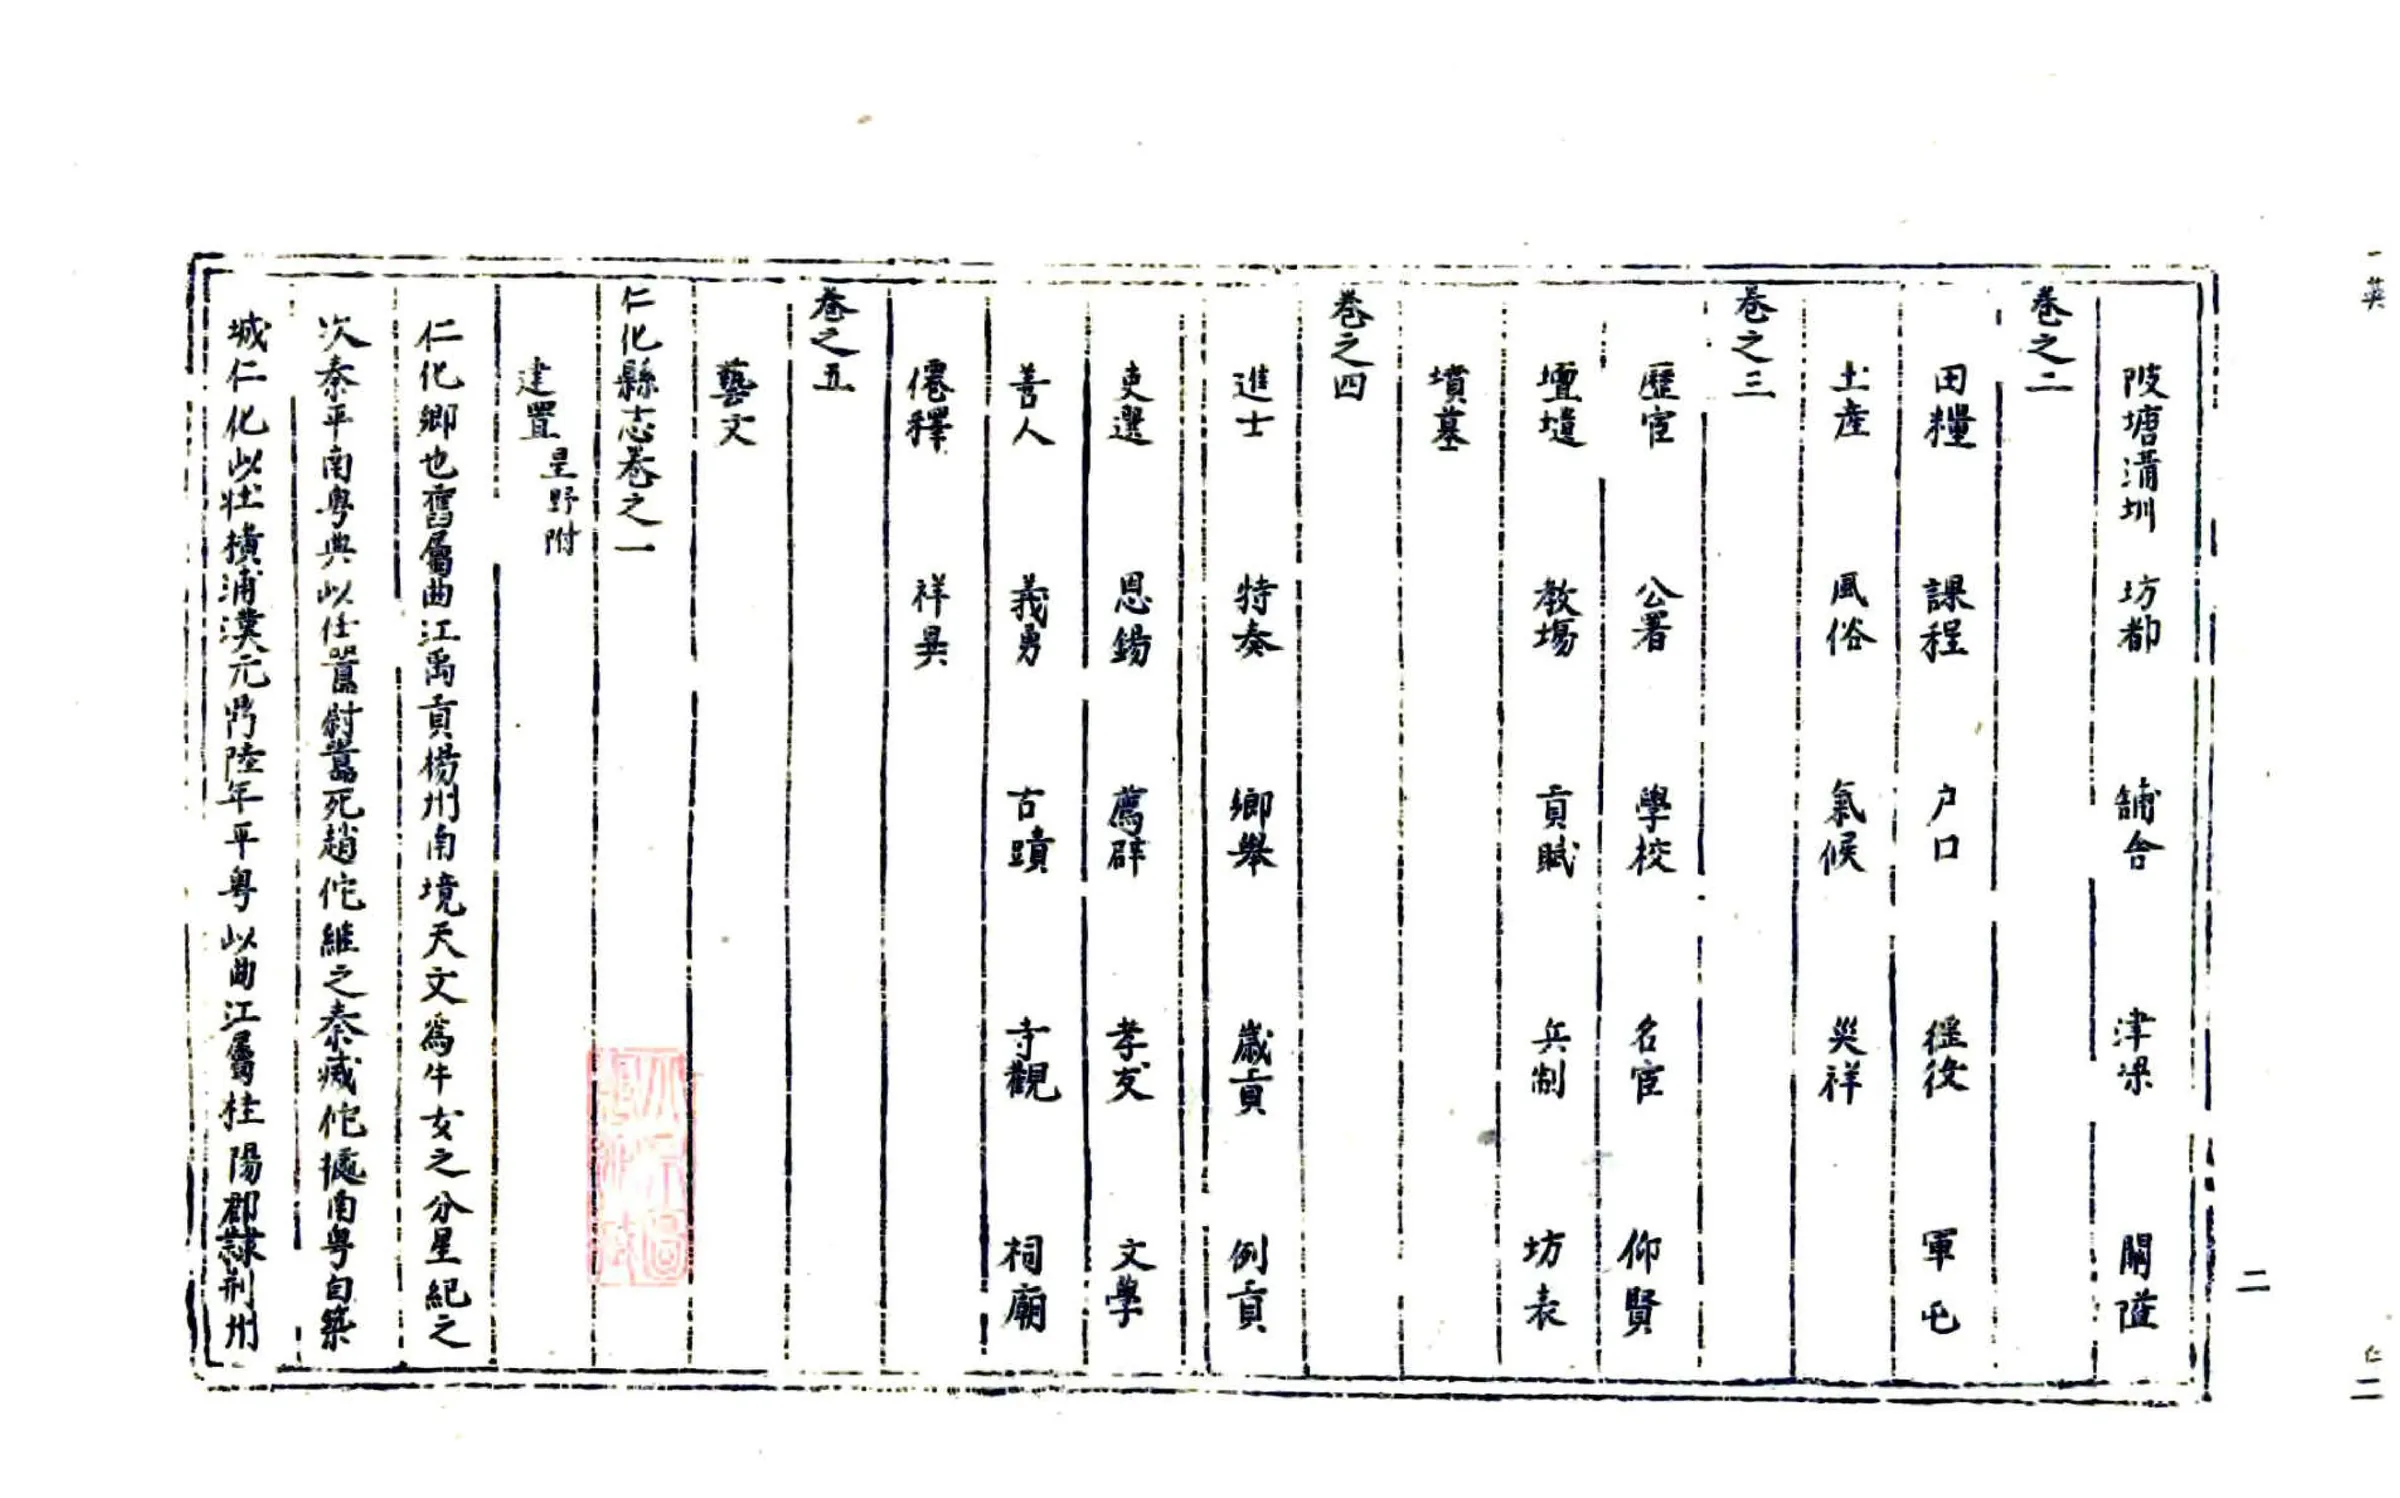 陂塘溝圳　坊都　舖舍　津梁　關隘
卷之二
田糧　課程　户口　徭役　軍屯
土產　風俗　氣候　災祥
卷之三
歷宦　公署　學校　名宦　仰賢
壇壝　教場　貢賦　兵制　坊表
墳墓
卷之四
進士　特奏　鄉舉　歲貢　例貢
吏選　恩錫　薦辟　孝友　文學
善人　義勇　古蹟　寺觀　祠廟
僊釋　祥異
卷之五
藝文
仁化縣志卷之一
建置　星野附
仁化鄉也舊屬曲江禹貢楊州南境天文為牛女之分星紀之
次秦平南粤典以任嚣尉嚣死趙佗繼之秦滅佗據南粤自築
城仁化以壮橫浦漢元鼎陸年平粤以曲江屬桂陽郡隸荆州
二
仁二